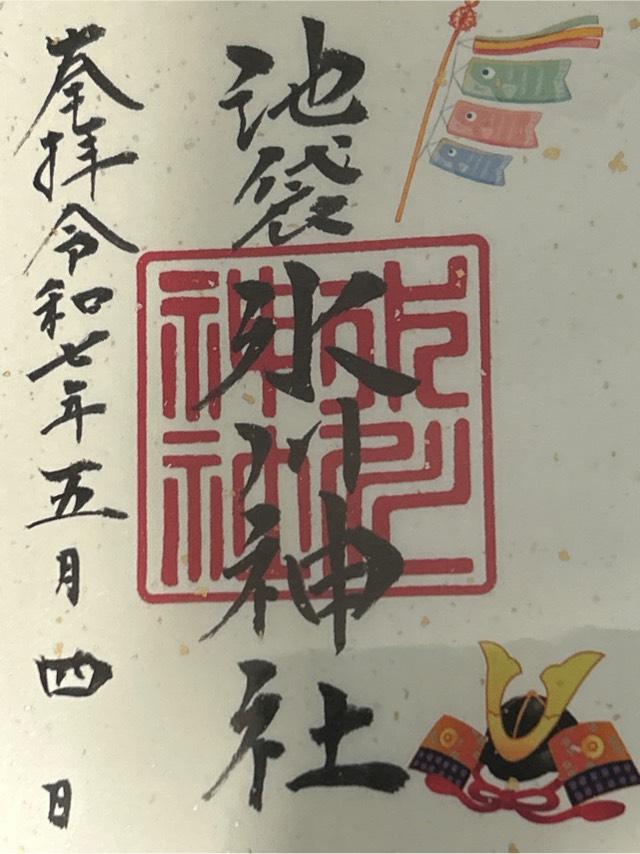 池袋氷川神社
奉拝令和七年五月四日